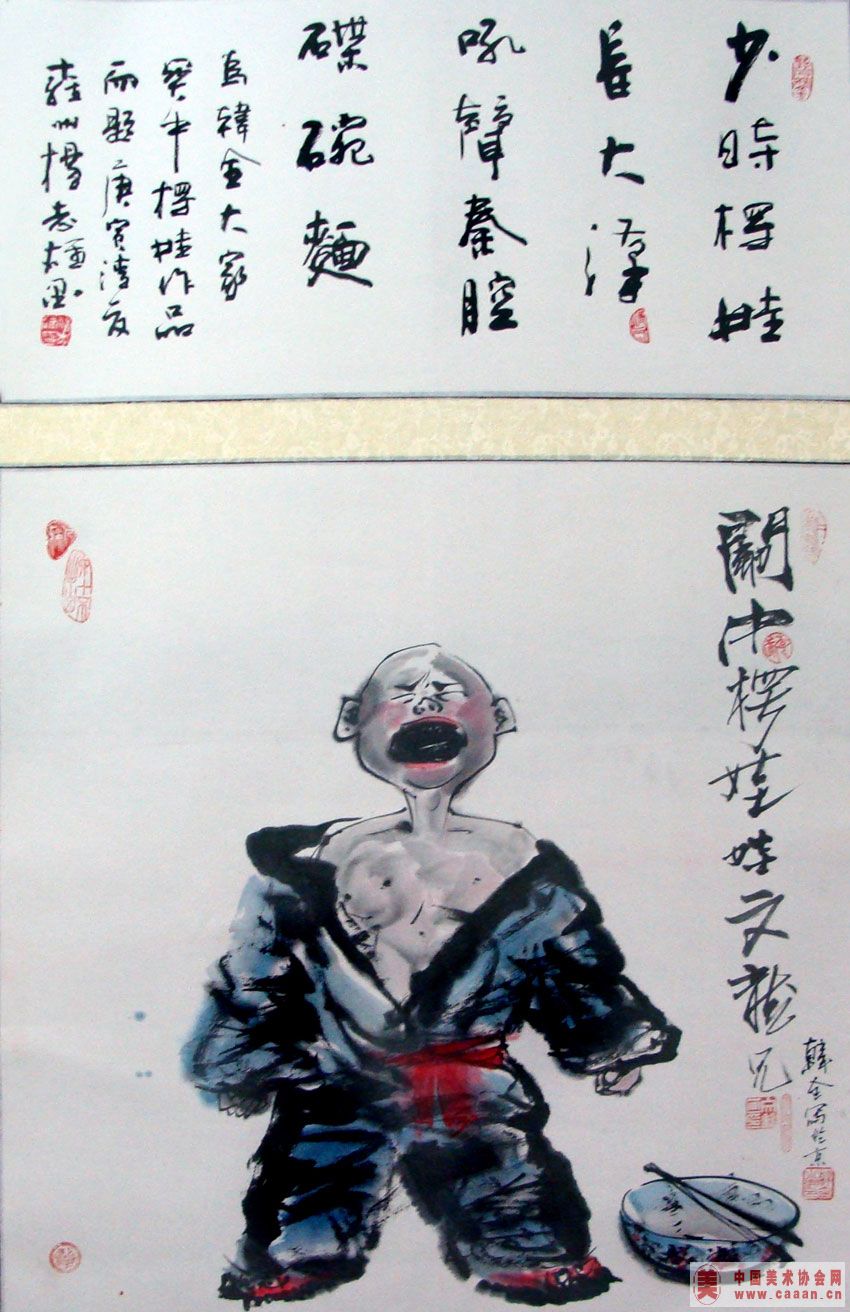 少時楞娃
長大漢
吼聲秦腔
碟碗麵
為韓金大家
牛楞娃作品
而題庚寅
雍州楊志
關中楞娃娃文龍兄
韓金寫於京
美
中国美术协会网
www.caaan.cn